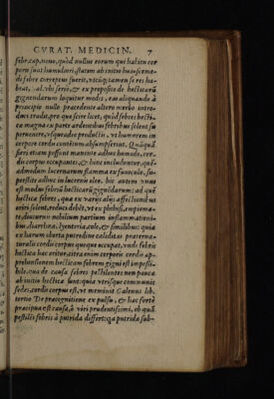 CVRAT. MEDICIN. 7
febr. cap. nono, quòd nullus eorum qui habitu cor
poris sunt humidiori, statim ab initio huiusce mo-
di febre correptus fuerit, vticꝗ; tamen se res ha-
beat, ubi seriò, & ex proposito de hecticarũ
gignendarum loquitur modis, eas aliquando à
principio nulla præcedente altero morbo intro-
duci tradit, præ quæ scire licet, quòd febres hecti-
cæ magna ex parte ardentibus febribus solent su-
peruenire, vsquæadeo productis, vt humorem in
corpore cordis contentum absumpserint. Quãquã
fieri etiam possunt manente adhuc humore, cor-
dis corpus occupantes, & hinc includuntur, quẽ-
admodum lucernarum flamma ex funiculo, su-
perstite adhuc in lucerna oleo. hic autem vnus
est modus febriũ hecticarũ gignendarum: ad quẽ
hectica febres, quæ ex varijs alijs affectionibus
oriri solent, reduci debẽt, vt ex phthisi, empiema-
te, diuturnis nobilium partium inflammationi-
bus, diarrhœa, lyenteria, cole, & similibus: quia
ex harum oborta putredine caliditas præterna-
turalis cordis corpus quoque occupat, vnde febris
hectica hac oritur, citra enim corporis cordis ap-
prehensionem hecticam febrem gigni est impossi-
bile. qua de causa febres pestilentes non paucæ
ab initio hecticæ sunt: quia vtriscꝗue communis
sedes, cordis corpus est, vt meminit Galenus lib.
tertio De præcognitione ex pulsu, & hæc fortè
præcipua est causa, ô viri prudentissimi, ob quã
pestilẽs febris à putrida differt: ꝗa putrida sub-